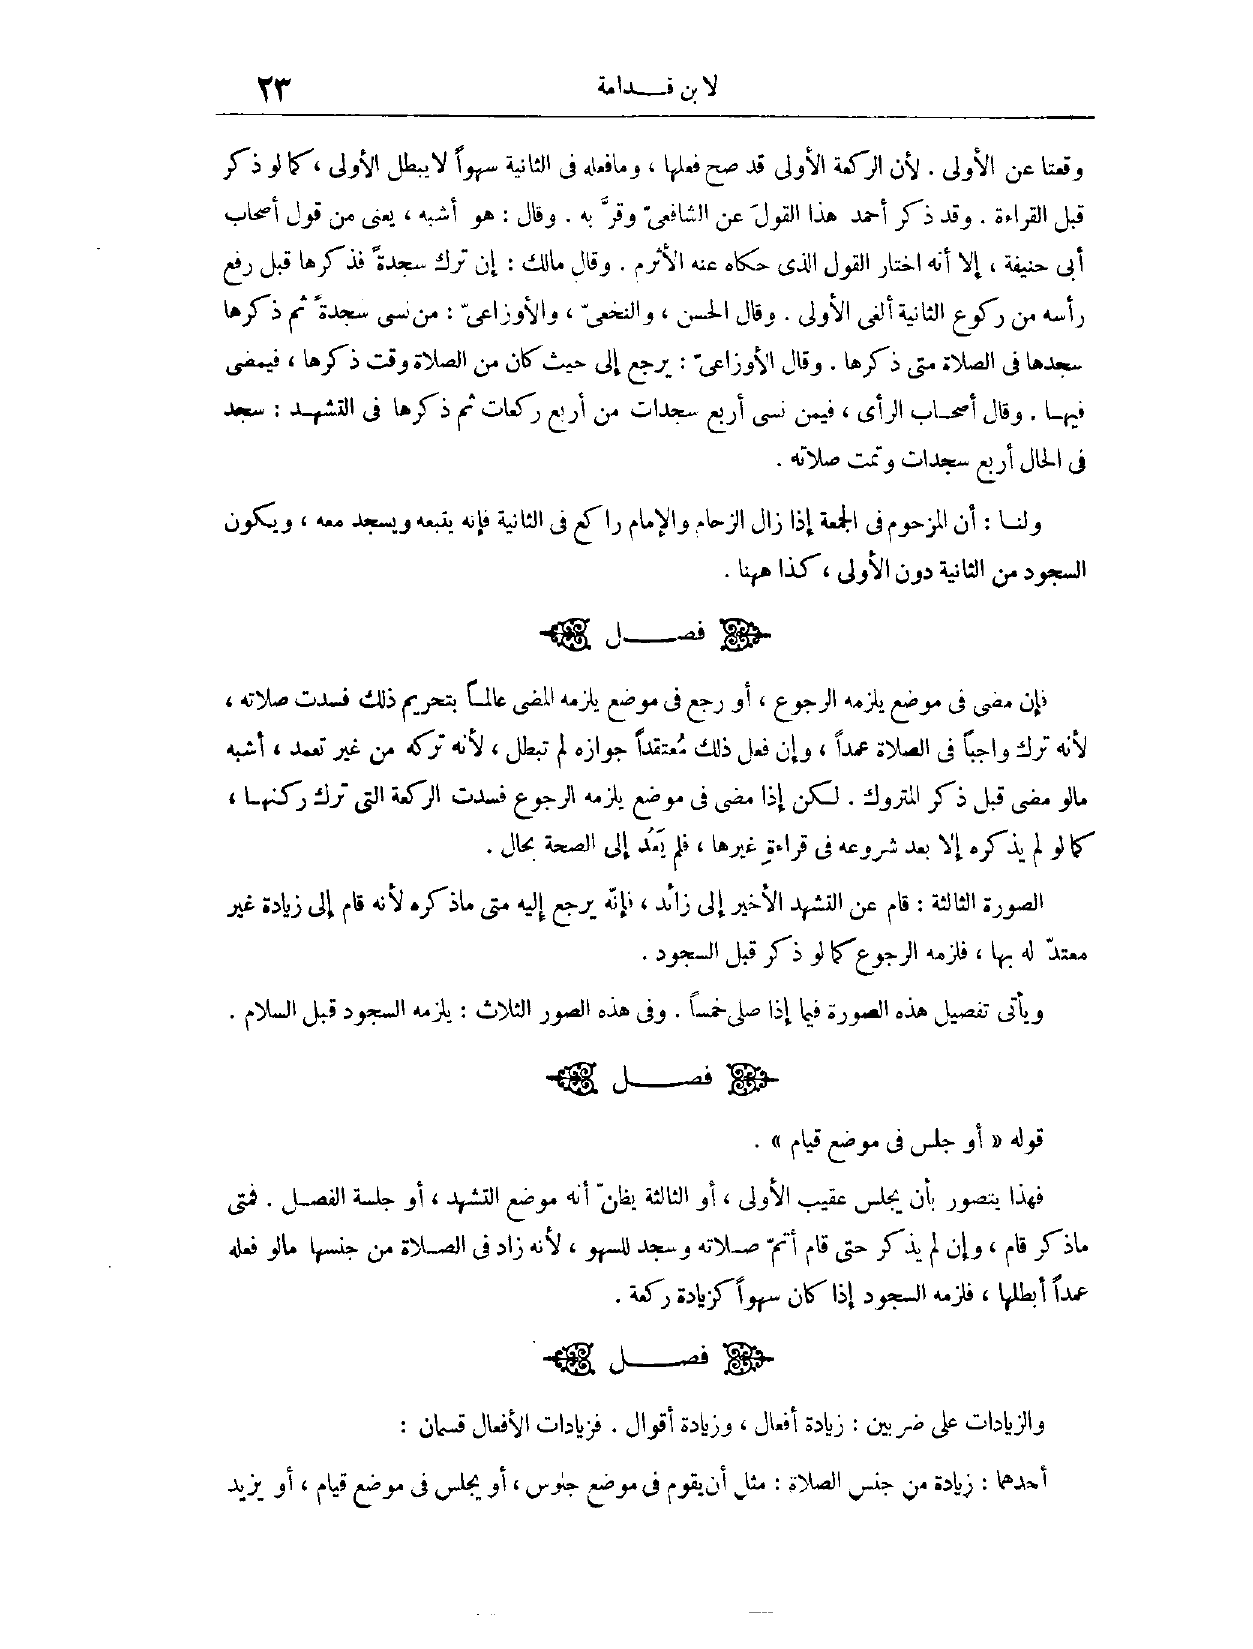 لابن قدامة ٢٣
وقعتا عن الأولى . لأن الركعة الأولى قد صح فعلها ، ومافعله فى الثانية سهواً لا يبطل الأولى ، كما لو ذكر
قبل القراءة . وقد ذكر أحمد هذا القولَ عن الشافعىّ وقرَّ به . وقال : هو أشبه ، يعنى من قول أصحاب
أبى حنيفة ، إلا أنه اختار القول الذى حكاه عنه الأثرم . وقال مالك : إن ترك سجدةً فذكرها قبل رفع
رأسه من ركوع الثانية ألغى الأولى . وقال الحسن ، والنخعىّ ، والأوزاعىّ : من نسى سجدةً ثم ذكرها
سجدها فى الصلاة متى ذكرها . وقال الأوزاعىّ : يرجع إلى حيث كان من الصلاة وقت ذكرها ، فيمضى
فيها . وقال أصحاب الرأى ، فيمن نسى أربع سجدات من أربع ركعات ثم ذكرها فى التشهد : سجد
فى الحال أربع سجدات وتمت صلاته .
ولنا : أن المزحوم فى الجمعة إذا زال الزحام والإمام راكع فى الثانية فإنه يتبعه ويسجد معه ، ويكون
السجود من الثانية دون الأولى ، كذا ههنا .
فصل
فإن مضى فى موضع يلزمه الرجوع ، أو رجع فى موضع يلزمه المضى عالماً بتحريم ذلك فسدت صلاته ،
لأنه ترك واجباً فى الصلاة عمداً ، وإن فعل ذلك مُعتقداً جوازه لم تبطل ، لأنه تركه من غير تعمد ، أشبه
مالو مضى قبل ذكر المتروك . لكن إذا مضى فى موضع يلزمه الرجوع فسدت الركعة التى ترك ركنها ،
كما لو لم يذكره إلا بعد شروعه فى قراءةِ غيرها ، فلم يَعُد إلى الصحة بحال .
الصورة الثالثة : قام عن التشهد الأخير إلى زائد ، فإنّه يرجع إليه متى ماذكره لأنه قام إلى زيادة غير
معتدّ له بها ، فلزمه الرجوع كما لو ذكر قبل السجود .
ويأتى تفصيل هذه الصورة فيما إذا صلى خمساً . وفى هذه الصور الثلاث : يلزمه السجود قبل السلام .
فصل
قوله « أو جلس فى موضع قيام » .
فهذا يتصور بأن يجلس عقيب الأولى ، أو الثالثة يظنّ أنه موضع التشهد ، أو جلسة الفصل . فمتى
ماذكر قام ، وإن لم يذكر حتى قام أتمّ صلاته وسجد للسهو ، لأنه زاد فى الصلاة من جنسها مالو فعله
عمداً أبطلها ، فلزمه السجود إذا كان سهواً كزيادة ركعة .
فصل
والزيادات على ضربين : زيادة أفعال ، وزيادة أقوال . فزيادات الأفعال قسمان :
أحدهما : زيادة من جنس الصلاة : مثل أن يقوم فى موضع جلوس ، أو يجلس فى موضع قيام ، أو يزيد